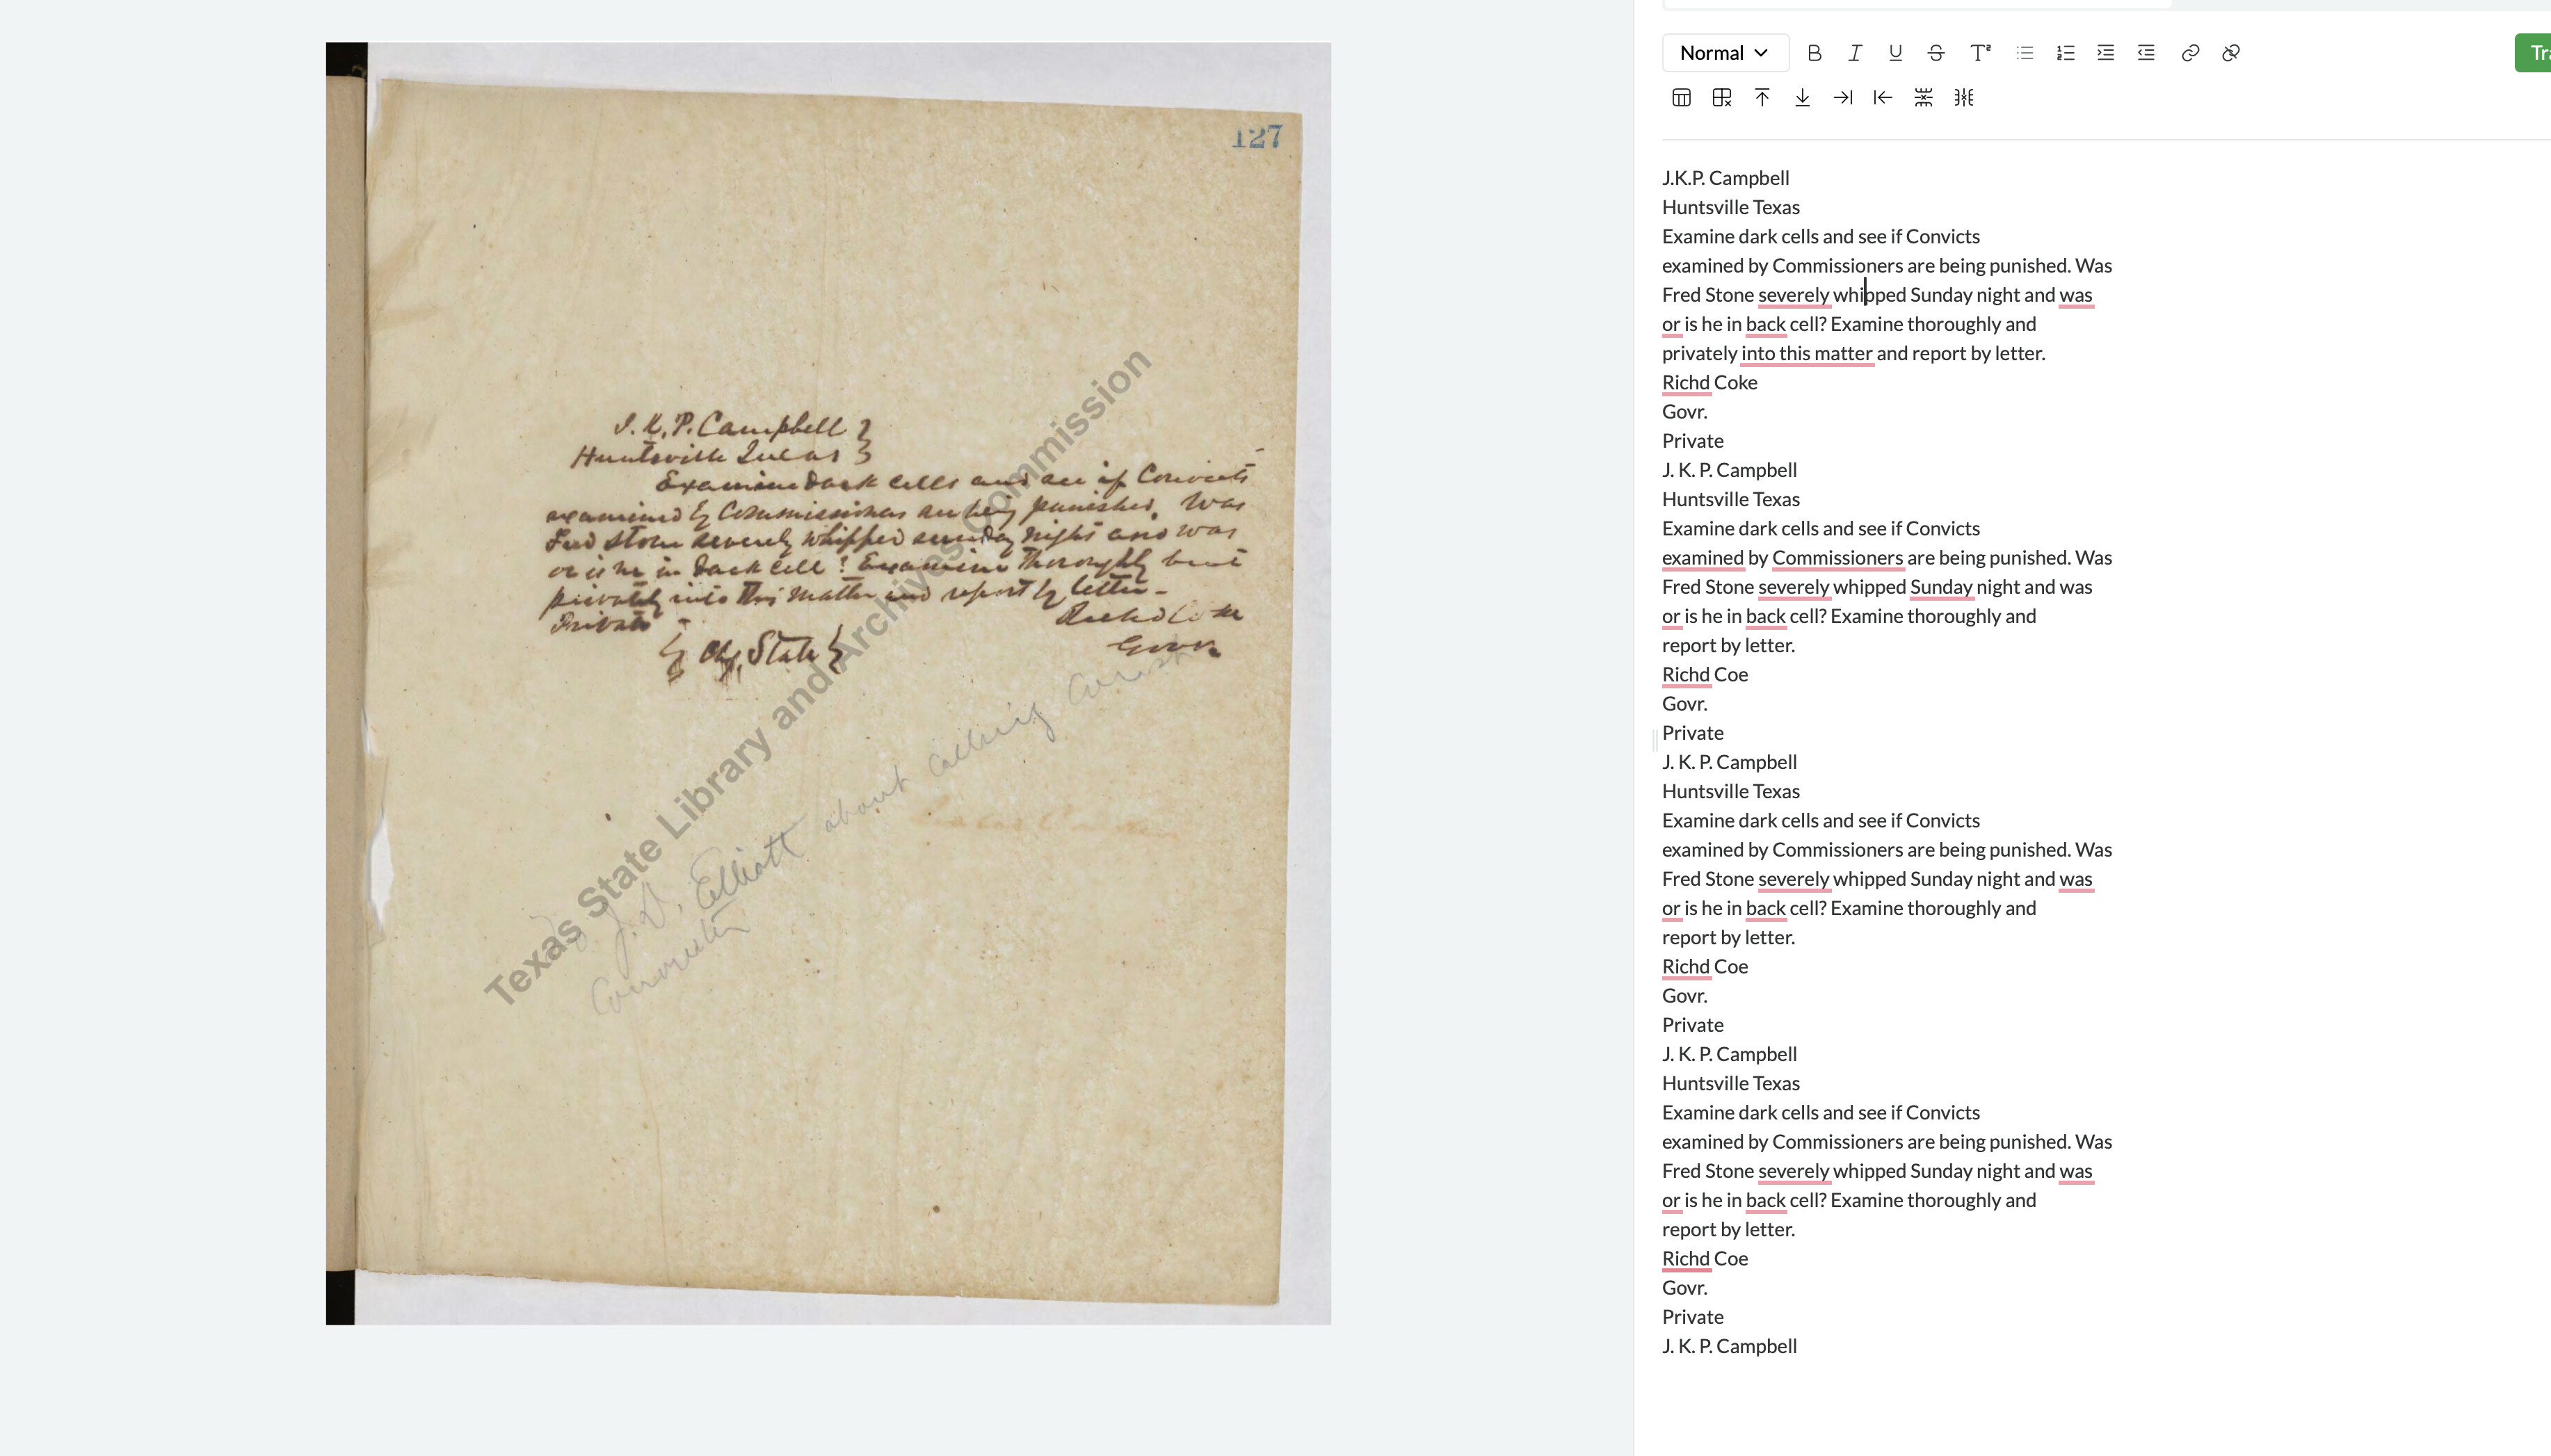 Normal
Tra
127
J. K. P. Campbell }
Huntsville Texas }
Examine dark cells and see if Convicts
examined by Commissioners are being punished. Was
Fred Stone severely whipped sunday night and was
or is he in dark cell? Examine thoroughly but
privately into this matter and report by letter -
Private
Richd Coke
Govr.
{ Chg. State }
To J. D. Elliott about calling
Texas State Library and Archives Commission
J.K.P. Campbell
Huntsville Texas
Examine dark cells and see if Convicts
examined by Commissioners are being punished. Was
Fred Stone severely whipped Sunday night and was
or is he in back cell? Examine thoroughly and
privately into this matter and report by letter.
Richd Coke
Govr.
Private
J. K. P. Campbell
Huntsville Texas
Examine dark cells and see if Convicts
examined by Commissioners are being punished. Was
Fred Stone severely whipped Sunday night and was
or is he in back cell? Examine thoroughly and
report by letter.
Richd Coe
Govr.
Private
J. K. P. Campbell
Huntsville Texas
Examine dark cells and see if Convicts
examined by Commissioners are being punished. Was
Fred Stone severely whipped Sunday night and was
or is he in back cell? Examine thoroughly and
report by letter.
Richd Coe
Govr.
Private
J. K. P. Campbell
Huntsville Texas
Examine dark cells and see if Convicts
examined by Commissioners are being punished. Was
Fred Stone severely whipped Sunday night and was
or is he in back cell? Examine thoroughly and
report by letter.
Richd Coe
Govr.
Private
J. K. P. Campbell